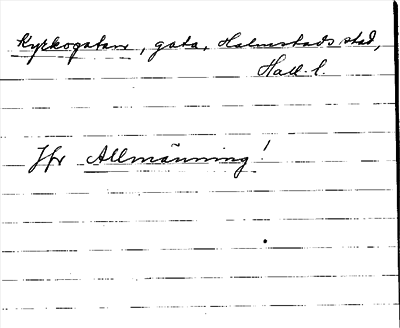 Kyrkogatan, gata, Halmstads stad,
Hall. l.
Jfr Allmänning!